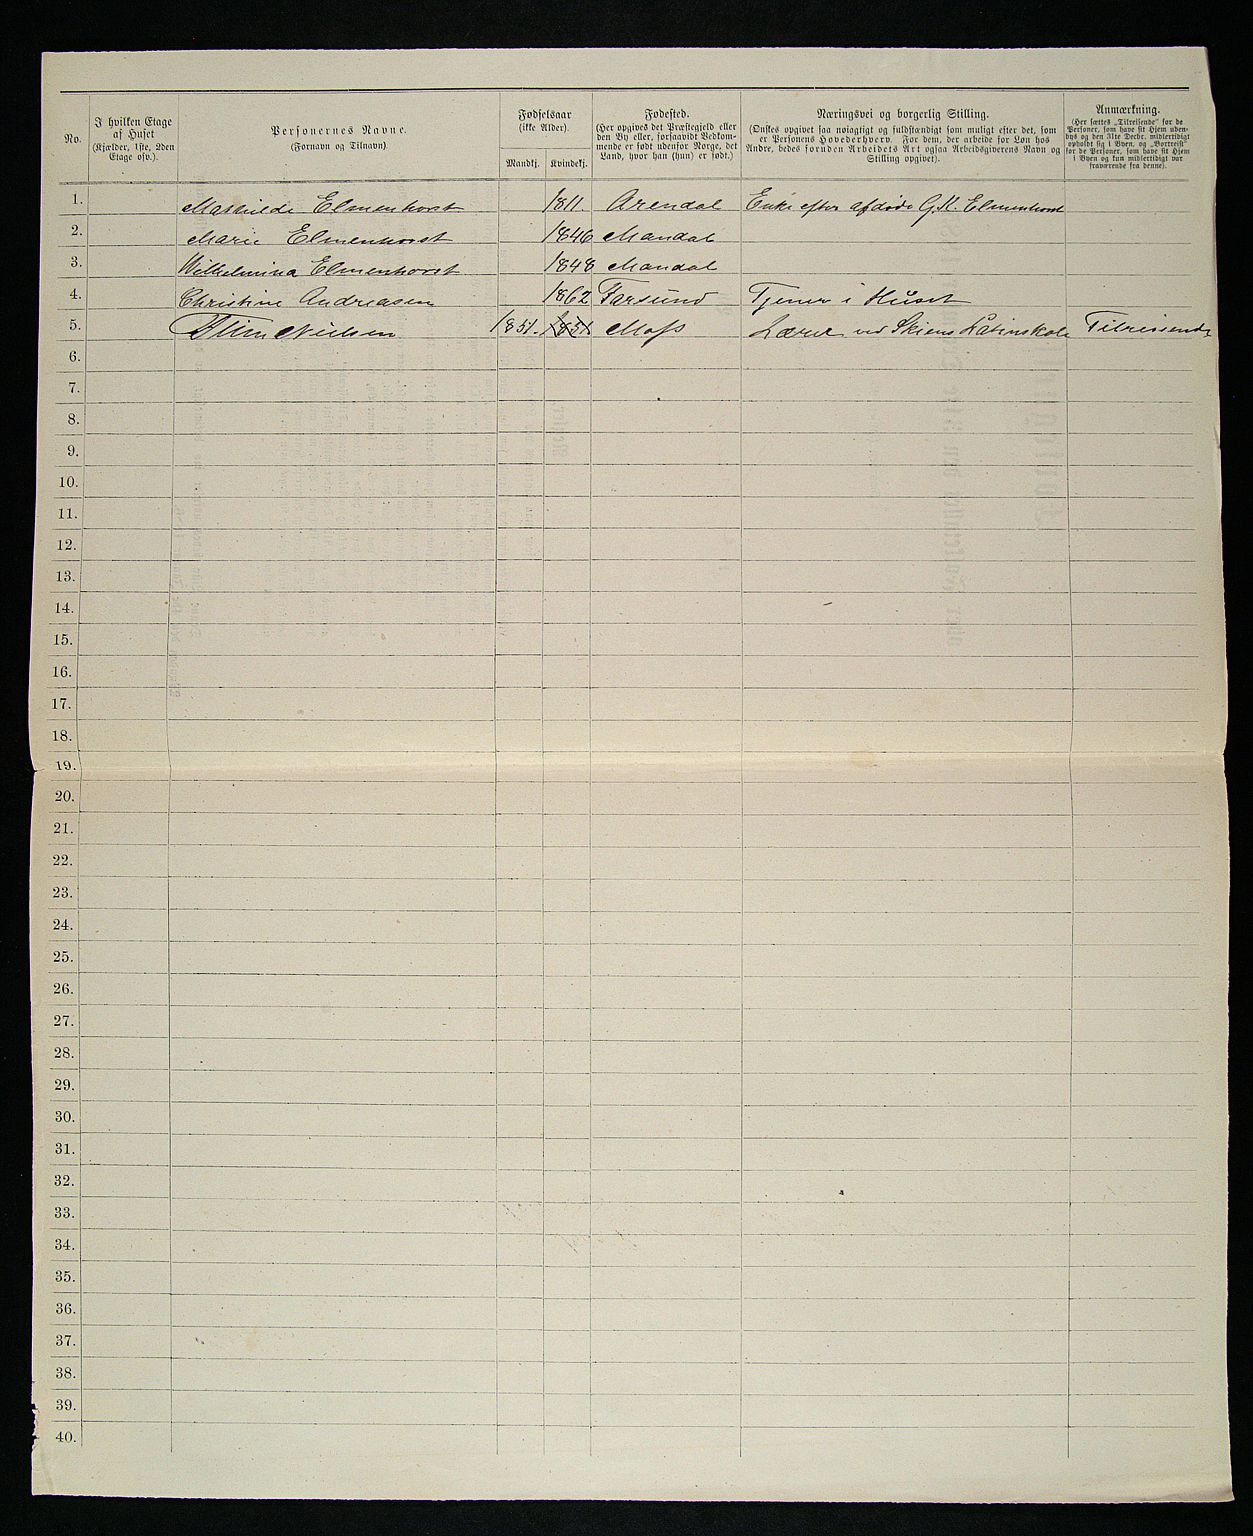 No.
I hvilken Etage
af Huset
(Kjælder, 1ste, 2den
Etage osv.).
Personernes Navne.
(Fornavn og Tilnavn).
Fødselsaar
(ikke Alder).
Mandkj.
Kvindekj.
Fødested.
(Her opgives det Præstegjeld eller
den By eller, forsaavidt Vedkom-
mende er født udenfor Norge, det
Land, hvor han (hun) er født.)
Næringsvei og borgerlig Stilling.
(Ønskes opgivet saa nøiagtigt og fuldstændigt som muligt efter det, som
er Personens Hovederhverv. For dem, der arbeide for Løn hos
Andre, bedes foruden Arbeidets Art ogsaa Arbeidsgiverens Navn og
Stilling opgivet).
Anmærkning.
(Her sættes „Tilreisende“ for de
Personer, som have sit Hjem uden-
bys og den 31te Decbr. midlertidigt
opholdt sig i Byen, og „Bortreist“
for de Personer, som have sit Hjem
i Byen og kun midlertidigt var
fraværende fra denne).
1. Mathilde Elmenhorst 1811. Arendal Enke efter afdøde G. K. Elmenhorst
2. Marie Elmenhorst 1846 Mandal
3. Wilhelmina Elmenhorst 1848 Mandal
4. Christine Andreasen 1862 Farsund Tjener i Huset
5. Nielsen 1851. 1851 Moss Lærer ved Skiens Latinskole Tilreisende
6.
7.
8.
9.
10.
11.
12.
13.
14.
15.
16.
17.
18.
19.
20.
21.
22.
23.
24.
25.
26.
27.
28.
29.
30.
31.
32.
33.
34.
35.
36.
37.
38.
39.
40.